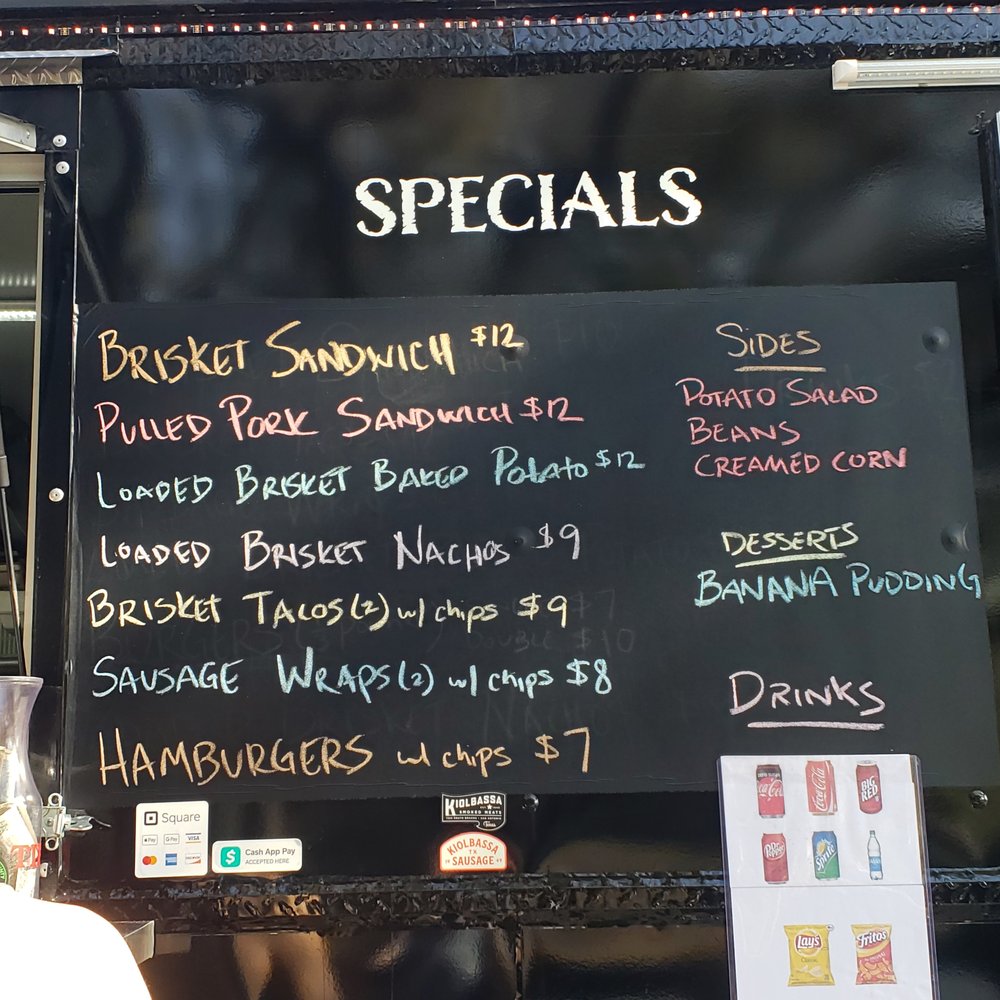 SPECIALS
BRISKET SANDWICH $12
PULLED PORK SANDWICH $12
LOADED BRISKET BAKED POTATO $12
LOADED BRISKET NACHOS $9
BRISKET TACOS (2) w/ chips $9
SAUSAGE WRAPS (2) w/ chips $8
HAMBURGERS w/ chips $7
SIDES
POTATO SALAD
BEANS
CREAMED CORN
DESSERTS
BANANA PUDDING
DRINKS
Square
Pay G Pay VISA
DISCOVER
$ Cash App Pay
ACCEPTED HERE
KIOLBASSA
SMOKED MEATS
Texas
KIOLBASSA
TX
SAUSAGE
Coca-Cola
Coca-Cola
BIG RED
Dr Pepper
Sprite
Lay's
Classic
Fritos